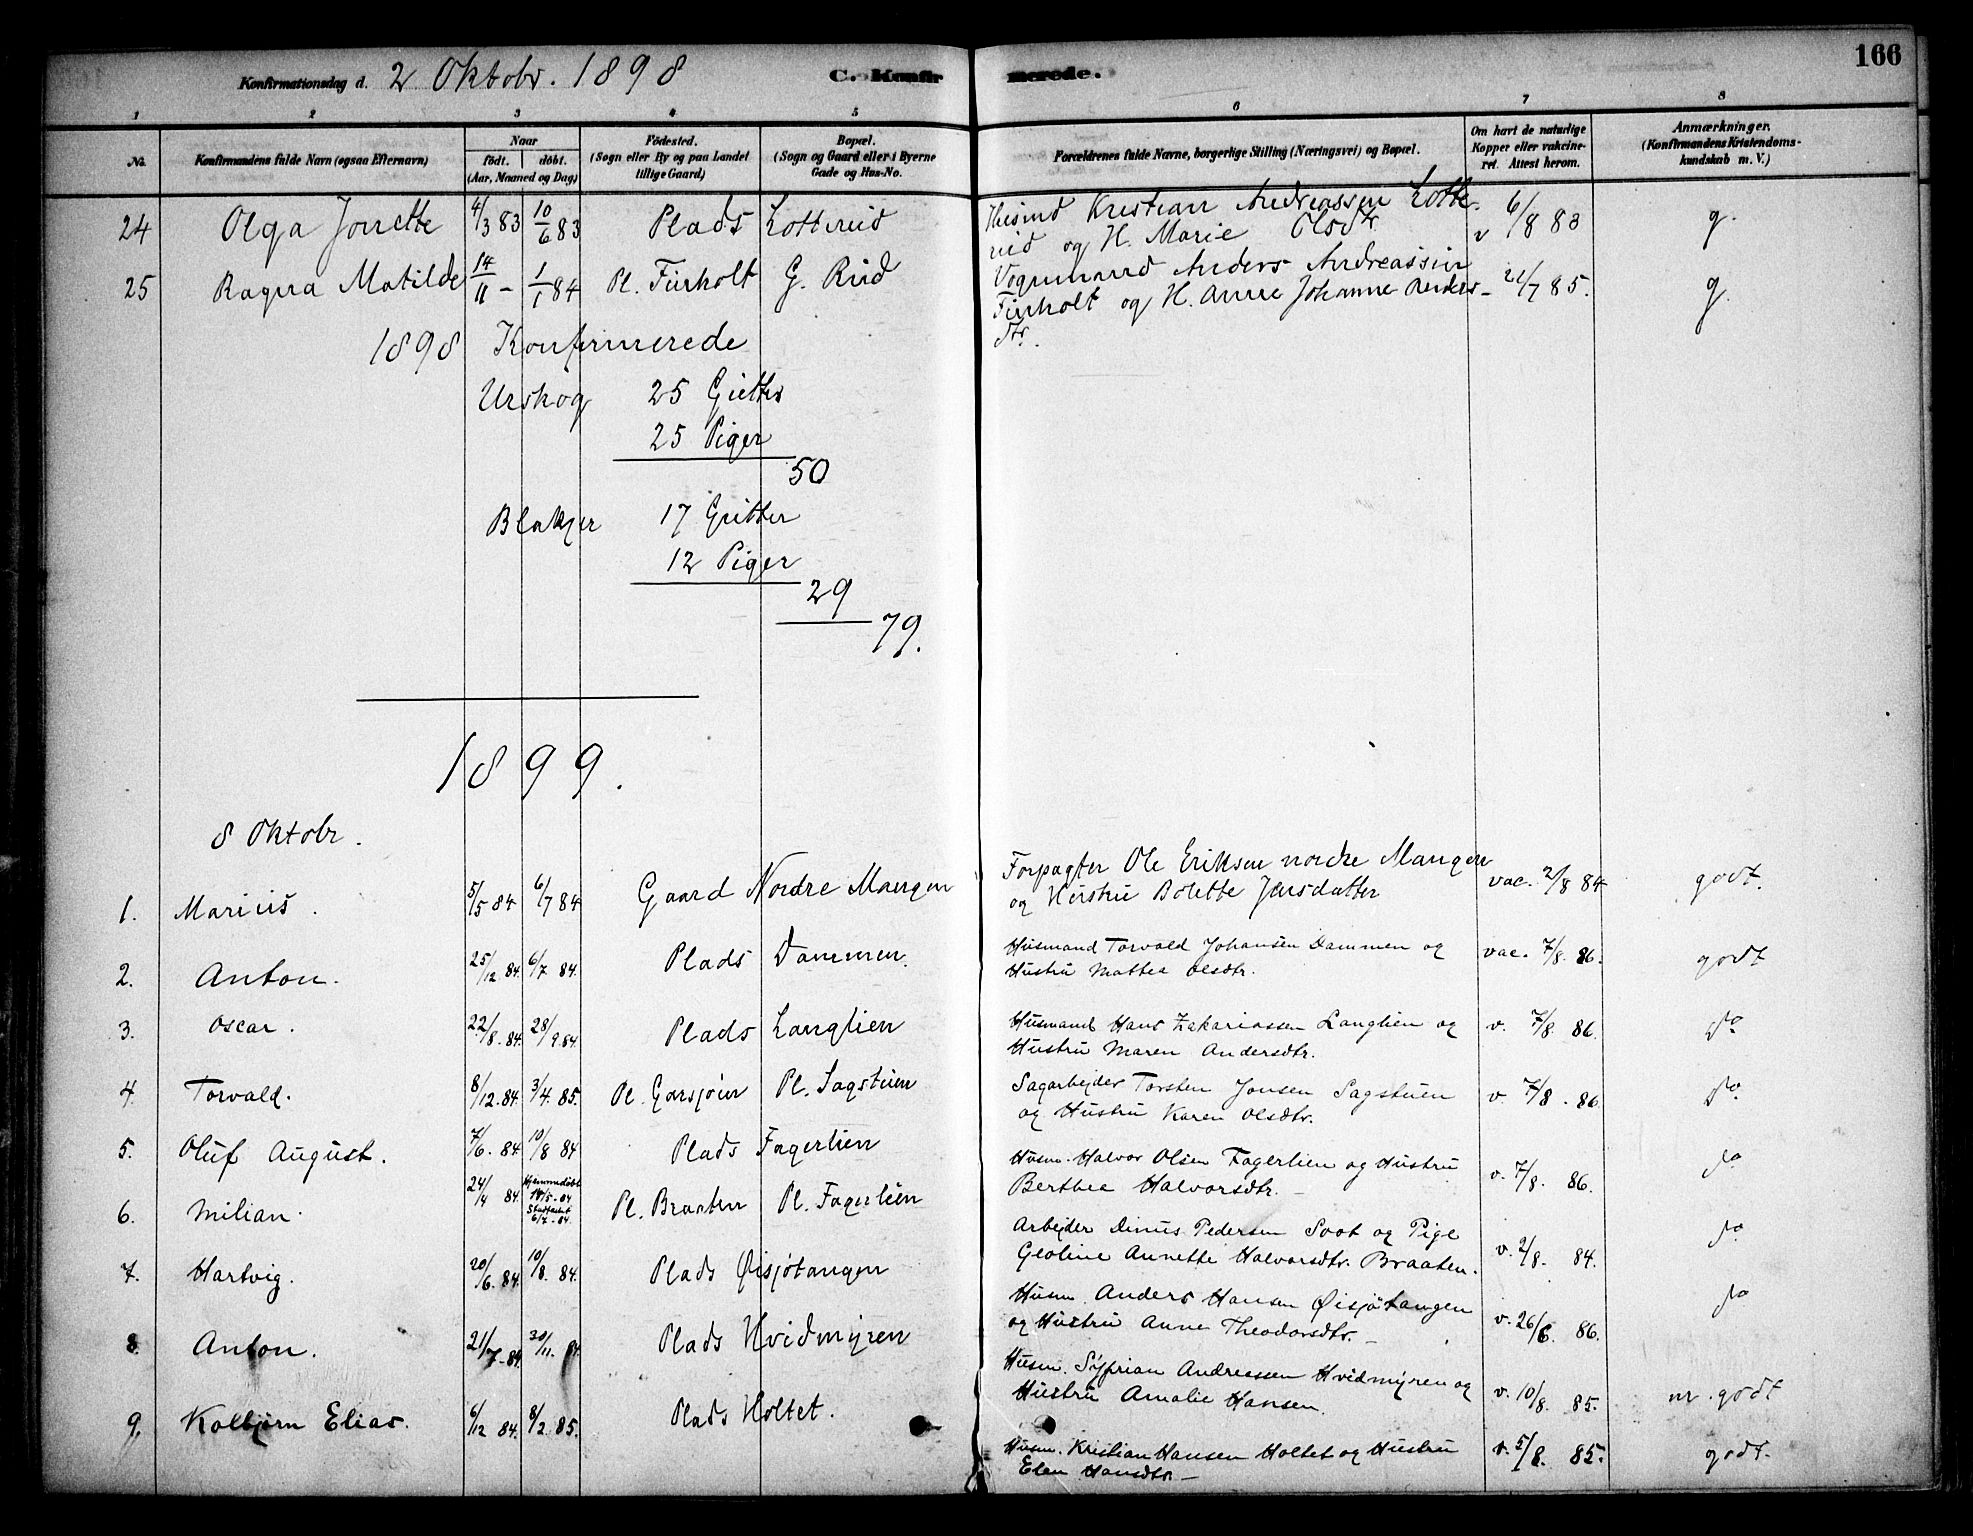 166
Konfirmationsdag d. 2 Oktobr. 1898 C. Konfirmerede.
1 2 3 4 5 6 7 8
No. Konfirmandens fulde Navn (ogsaa Efternavn) Naar födt. döbt. (Aar, Maaned og Dag) Födested. (Sogn eller By og paa Landet tillige Gaard) Bopæl. (Sogn og Gaard eller i Byerne Gade og Hus-No. Forældrenes fulde Navne, borgerlige Stilling (Næringsvei) og Bopæl. Om havt de naturlige Kopper eller vakcineret. Attest herom. Anmærkninger. (Konfirmandens Kristendomskundskab m. V.)
24 Olga Jonette 4/3 83 10/6 83 Plads Lotterud Husmd Kristian Andreassen Lotte- v 6/8 83 g.
rud og H. Marie Olsdtr
25 Ragna Matilde 14/11 - 1/1 84 Pl. Furholt G. Rud Vognmand Anders Andreassen 21/7 85. g.
Furholt og H. Anne Johanne Anders-
dtr.
1898 Konfirmerede
Urskog 25 Gutter
25 Piger
50
Blakjer 17 Gutter
12 Piger
29
79.
1899.
8 Oktobr.
1. Marius. 5/5 84 6/7 84 Gaard Nordre Mangen Forpagter Ole Eriksen nordre Mangen vac. 2/8 84 godt.
og Hustru Bolette Jensdatter
2. Anton. 25/12 84 6/7 84. Plads Dammen. Husmand Torvald Johansen Dammen og vac. 7/8. 86. godt
Hustru Mathea Olsdtr.
3. Oscar. 22/8. 84. 28/9 84. Plads Langlien Husmand Hans Zakariassen Langlien og v. 7/8 86. do
Hustru Maren Andersdtr.
4. Torvald. 8/12. 84. 3/4. 85. Pl. Garsjöen Pl. Sagstuen Sagarbejder Torsten Jonsen Sagstuen v. 7/8 . 86 do
og Hustru Karen Olsdtr.
5. Oluf August. 7/6. 84 10/8 84 Plads Fagerlien Husm. Halvor Olsen Fagerlien og Hustru v. 7/8. 86. do
Berthea Halvorsdtr. -
6. Milian. 24/4 84. Hjemmedöbt 18/5-84 Stadfæstet 6/7-84. Pl. Braaten Pl. Fagerlien Arbejder Dinus Pedersen Soot og Pige v. 2/8. 84. do
Geoline Annette Halvorsdtr. Braaten.
7. Hartvig. 20/6. 84. 10/8. 84. Plads Øisjötangen Husm. Anders Hansen Øisjötangen v. 26/6. 86. do
og Hustru Anne Theodorsdtr. -
8. Anton. 21/7-84. 30/11. 84. Plads Hvidmyren Husm. Syprian Andreassen Hvidmyren og v. 10/8. 85. m. godt
Hustru Amalie Hansen.
9. Kolbjørn Elias. 6/12 84. 8/2. 85. Plads Holtet. Husm. Kristian Hansen Holtet og Hustru v. 5/8. 85. godt.
Elen Hansdtr. -